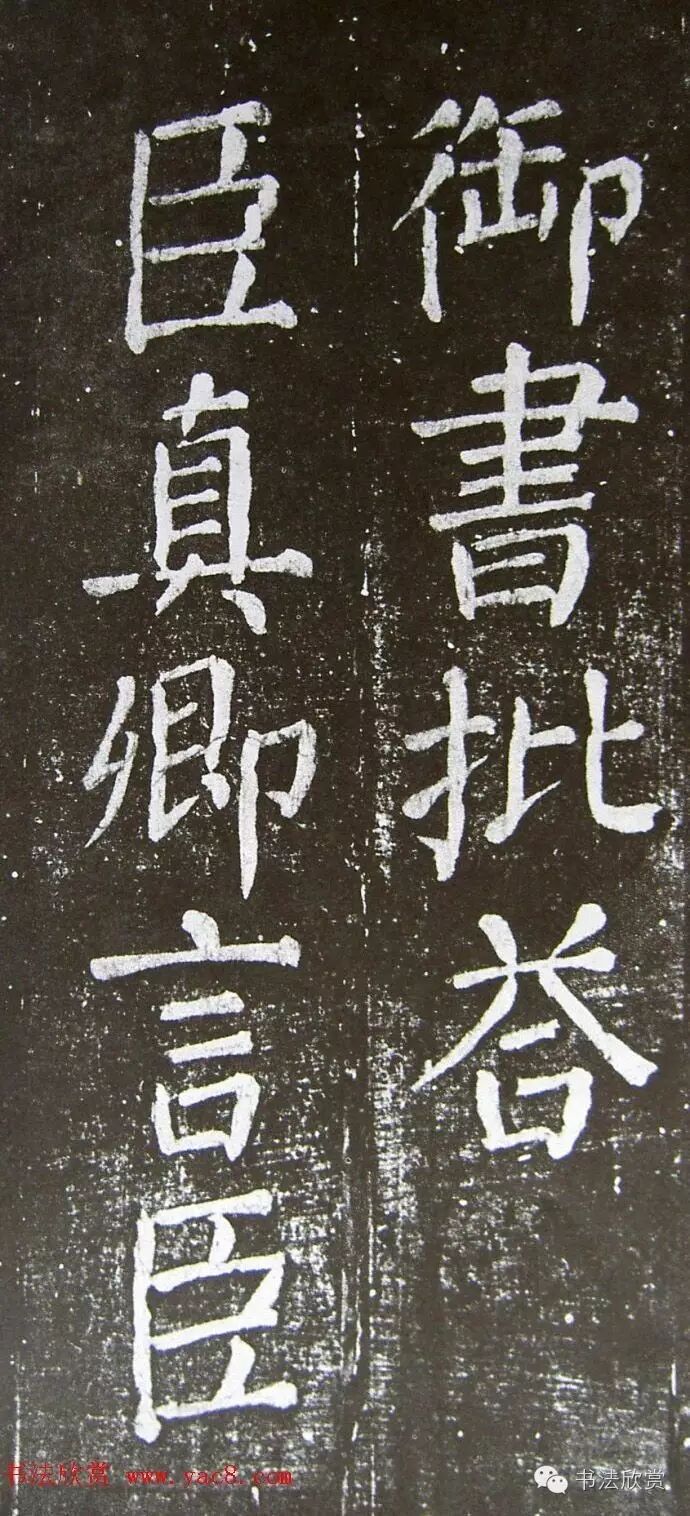 御書批荅
臣真卿言臣
书法欣赏 www.yac8.com
书法欣赏